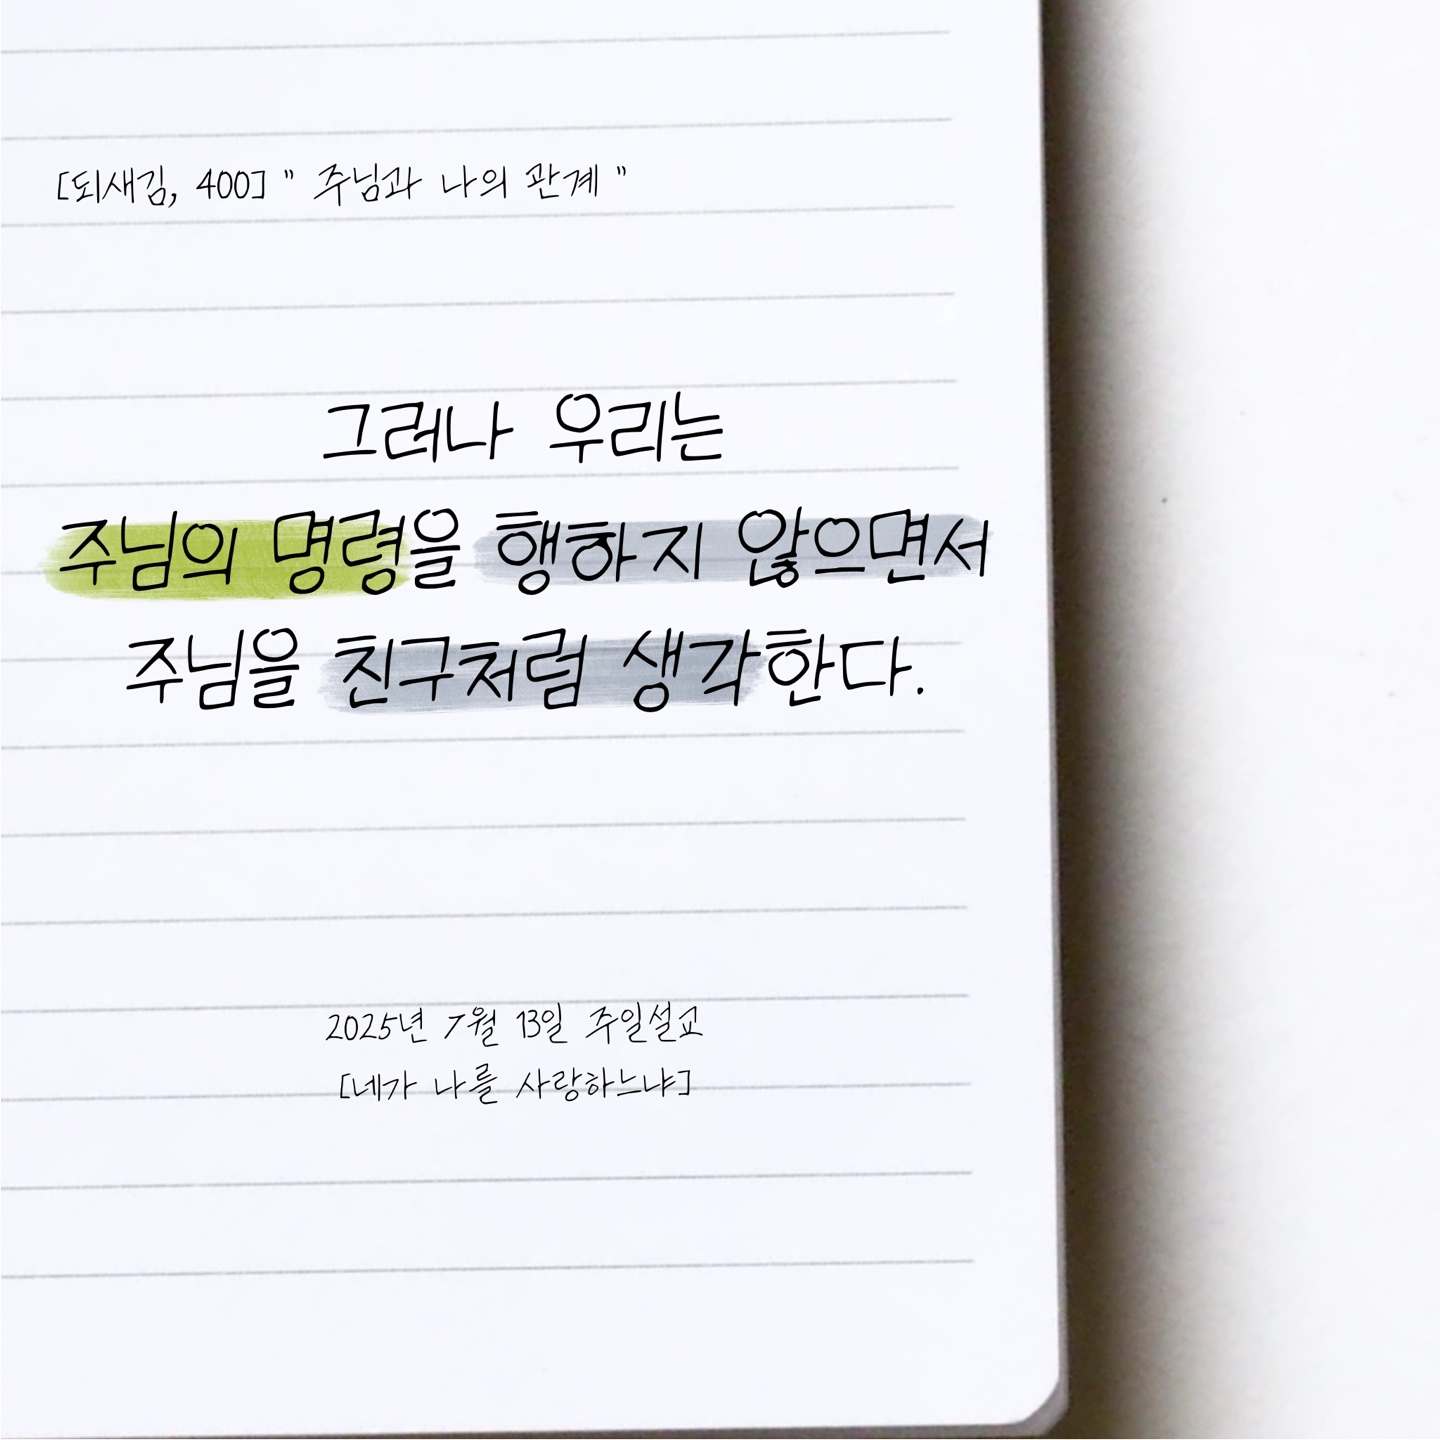 [되새김, 400] " 주님과 나의 관계 "
그러나 우리는
주님의 명령을 행하지 않으면서
주님을 친구처럼 생각한다.
2025년 7월 13일 주일설교
[네가 나를 사랑하느냐]